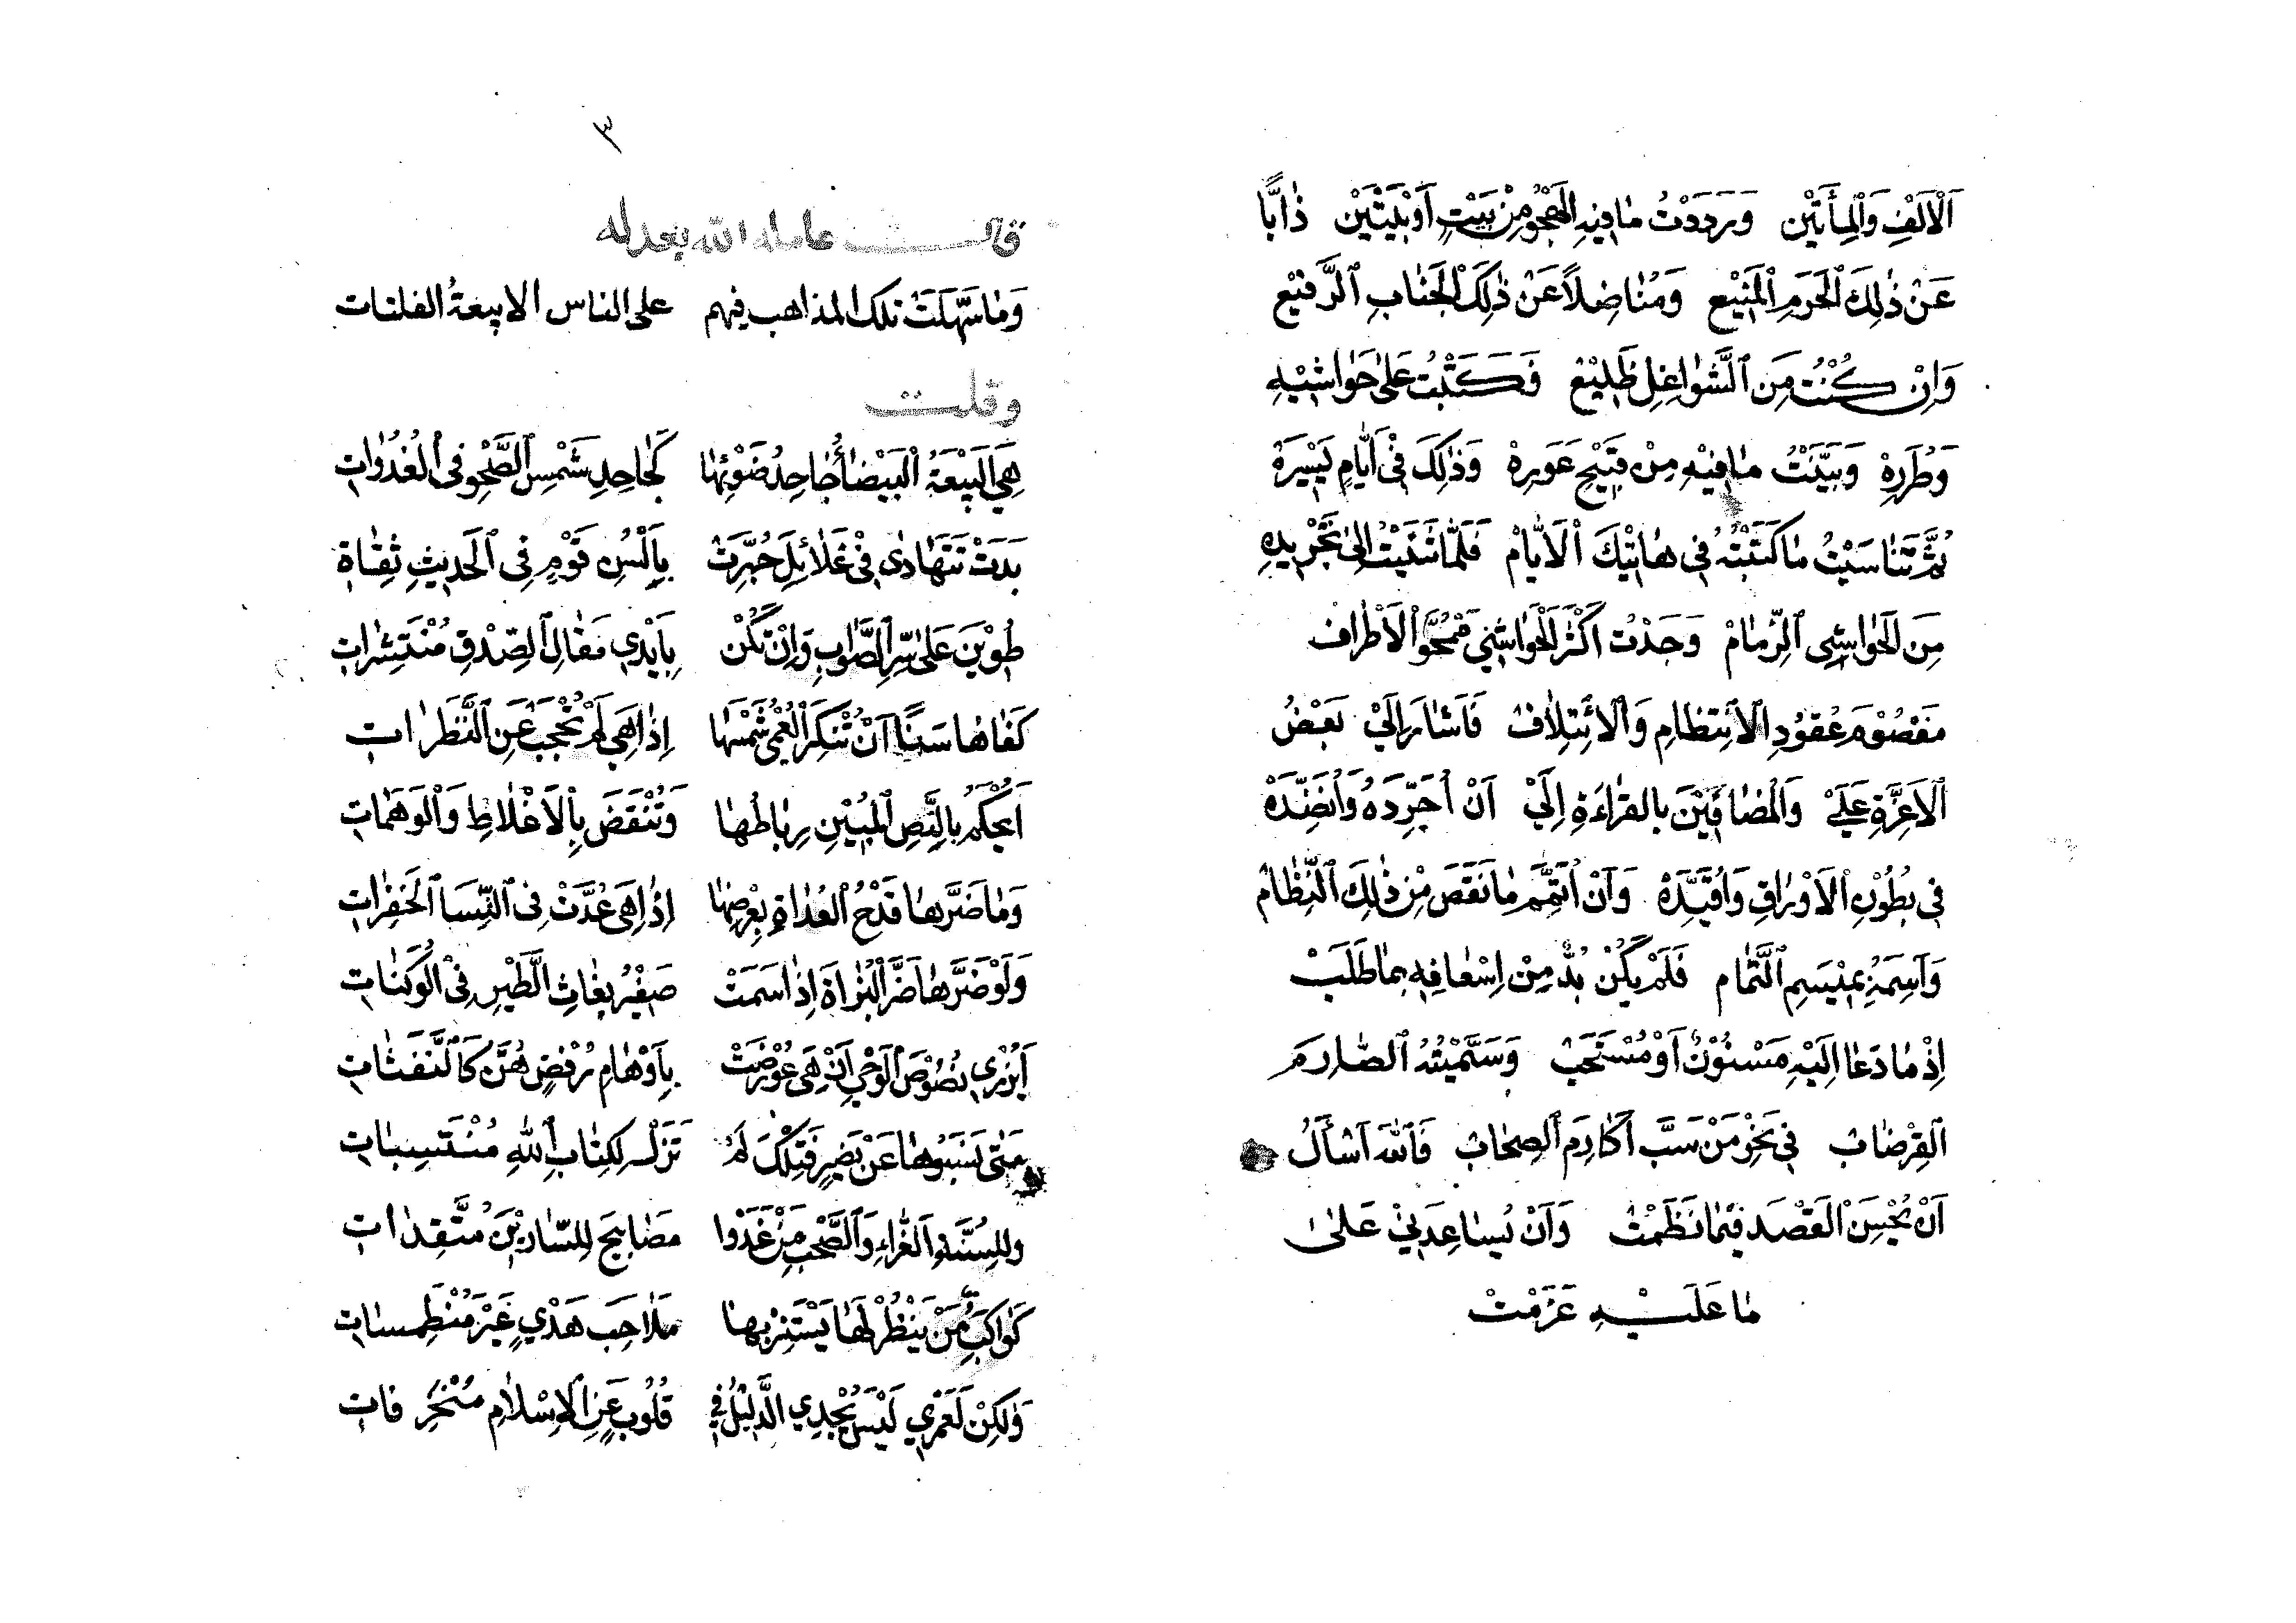 اَلْاَلْفِ وَالْمِأَتَيْن وَرَدَدْتُ مَا فِيْهِ الْهَجْوُ مِنْ بَيْتٍ اَوْ بَيْتَيْن ذٰابًّا
عَنْ ذٰلِكَ الْحَرَمِ الْمَنِيْع وَمُنَاضِلاً عَنْ ذٰلِكَ الْجَنَابِ الرَّفِيْع
وَاِنْ كُنْتُ مِنَ الشَّوَاغِلِ ظَلِيْع فَكَتَبْتُ عَلىٰ حَوَاشِيْهِ
وَطُرَرِهْ وَبَيَّنْتُ مَا فِيْهِ مِنْ قَبِيْحِ عَوَرِهْ وَذٰلِكَ فِيْ اَيَّامٍ يَسْيَرَهْ
ثُمَّ تَنَاسَيْتُ مَا كَتَبْتُهُ فِي هَاتِيْكَ الْاَيَّامْ فَلَمَّا ثُنِيْتُ اِلىٰ تَجْرِيْدِهِ
مِنَ الْحَوٰاشِى الرِّمَامْ وَجَدْتُ اَكْثَرَ الْحَوَاشِيْ مَمْحُوَّ الْاَطْرَاف
مَفْصُوْمَ عُقُوْدِ الْاِنْتِظَامِ وَالْاِئْتِلاَف فَاَشَارَ اِلَيْ بَعْضُ
الْاَعِزَّةِ عَلَيْ وَالْمُضَافِيْنَ بِالقِرَاءَةِ اِلَيْ اَنْ اُجَرِّدَهُ وَاُنَضِّدَهْ
فِي بُطُوْنِ الْاَوْرَاقِ وَاُقَيِّدَهْ وَاَنْ اُتَمِّمَ مَا نَقَصَ مِنْ ذٰلِكَ النِّظَامْ
وَاَسِمَهُ بِمِيْسَمِ التَّمَام فَلَمْ يَكُنْ بُدٌّ مِنْ اِسْعَافِهِ بِمَا طَلَبْ
اِذْ مَا دَعَا اِلَيْهِ مَسْنُوْنٌ اَوْ مُسْتَحَبْ وَسَمَّيْتُهُ الصَّارِمَ
الْقِرْضَابْ فِي نَحْرِ مَنْ سَبَّ اَكَارِمَ الْصِحَابْ فَاللهَ اَسْأَلُ
اَنْ يُحْسِنَ الْقَصْدَ فِيْمَا نَظَمْتْ وَاَنْ يُسَاعِدَنِيْ عَلىٰ
مَا عَلَيْهِ عَزَمْتْ
٣
قال عامله الله بعدله
وَمَا سَهَّلَتْ تلك المذاهب فيهم على الناس الا بيعةُ الفلتات
وقلت
هِيَ الْبَيْعَةُ الْبَيْضَاُ جَاحِدُ ضَوْئِهَا كَجَاحِدِ شَمْسِ الصَّحْوِ فِى الْغُدُوَاتِ
بَدَتْ تَتَهَادٰى فِيْ غَلاَئِلَ حُبِّرَتْ بِاَلْسُنِ قَوْمٍ فِى الْحَدِيْثِ ثِقَاةِ
طُوِيْنَ عَلىٰ سِرِّ الصَّوَابِ وَاِنْ تَكُنْ بِاَيْدِي مَقَالِ الصِّدْقِ مُنْتَشِرَاتِ
كَفَاهَا سَنًا اَنْ تُنْكِرَ الْعُمْىُ شَمْسَهَا اِذَا هِيَ لَمْ تُحْجَبْ عَنِ النَّظَرَاتِ
اَيُحْكَمُ بِالنَّصِ الْمُبِيْنِ رِبَاطُهَا وَتُنْقَضُ بِالْاَغْلَاطِ وَالْوَهَمَاتِ
وَمَا ضَرَّهَا قَدْحُ الْعُدَاةِ بِعِرْضِهَا اِذَا هِىَ عُدَّتْ فِى النِّسَا الْخَفِرَاتِ
وَلَوْ ضَرَّهَا ضَرَّ الْبُزَاةَ اِذَا سَمَتْ صَفِيْرُ بِغَاثِ الطَّيْرِ فِى الْوُكُنَاتِ
اَيُزْرِي نُصُوْصَ الْوَحْيِ اَنْ هِىَ عُوْرِضَتْ بِاَوْهَامِ رُفْضٍ هُنَّ كَالنَّفَثَاتِ
مَتٰى يَنْسُبُوْهَا عَنْ بَصِيْرٍ فَتِلْكَ لَمْ تَزَلْ لِكِتَابِ اللهِ مُنْتَسِبَاتِ
وَلِلسُّنَّةِ الْغَرَّاءِ وَالصَّحْبِ مَنْ غَدَوْا مَصَابِيْحَ لِلسَّارِيْنَ مُتَّقِدَاتِ
كَوَاكِبُ مَنْ يَنْظُرْ لَهَا يَسْتَنِرْ بِهَا مَلاَحِبَ هَدْيٍ غَيْرَ مُنْطَمِسَاتِ
وَلٰكِنْ لَعَمْرِي لَيْسَ يُجْدِي الدَّلِيْلُ فِيْ قُلُوْبٍ عَنِ الْاِسْلاَمِ مُنْحَرِفَاتِ